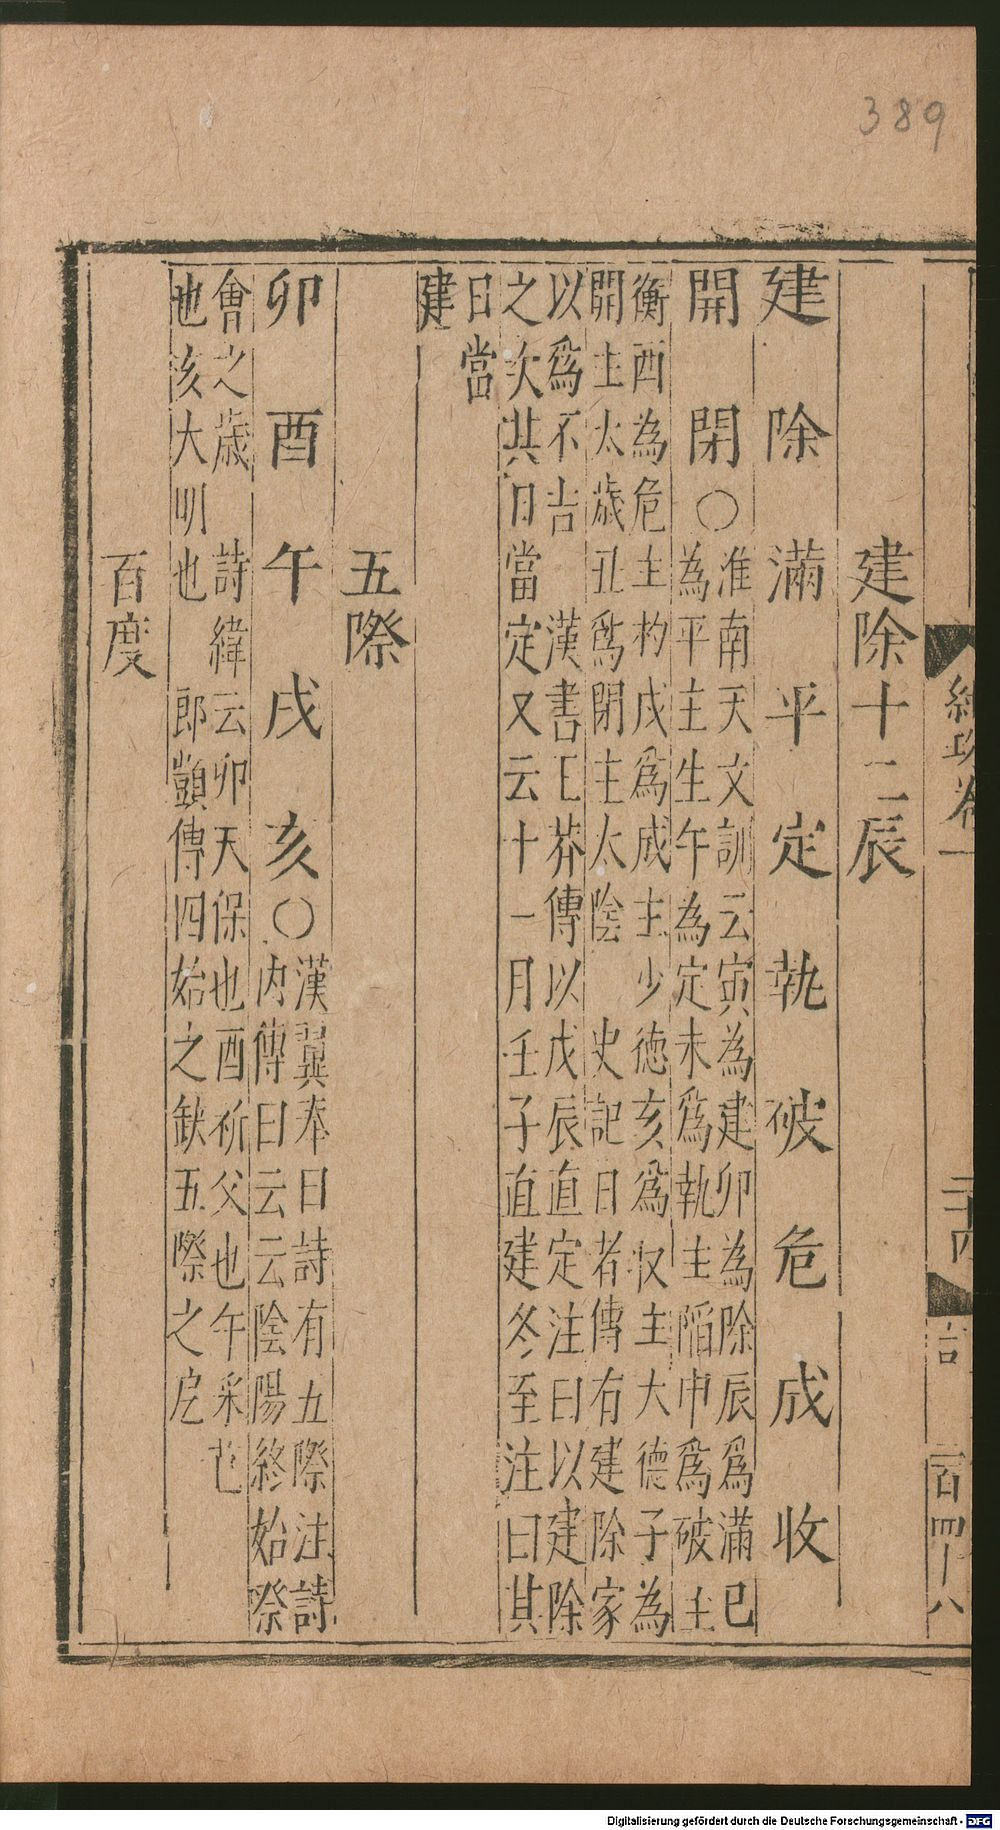 389
經攷卷一
二十四
建除十二辰
建除滿平定執破危成收
開閉○
淮南天文訓云寅為建卯為除辰爲滿巳
為平主生午為定未爲執主陷申爲破主
衡酉為危主杓戌爲成主少德亥爲収主大德子為
開主太歲丑爲閉主太陰 史記日者傳有建除家
以爲不吉 漢書王莽傳以戊辰直定注曰以建除
之次其日當定又云十一月壬子直建冬至注曰其
日當
建
五際
卯酉午戌亥○
漢翼奉曰詩有五際注詩
內傳曰云云陰陽終始際
會之歲 詩緯云卯天保也酉祈父也午采芑
也亥大明也 郎顗傳四始之缺五際之戹
百度
Digitalisierung gefördert durch die Deutsche Forschungsgemeinschaft - DFG